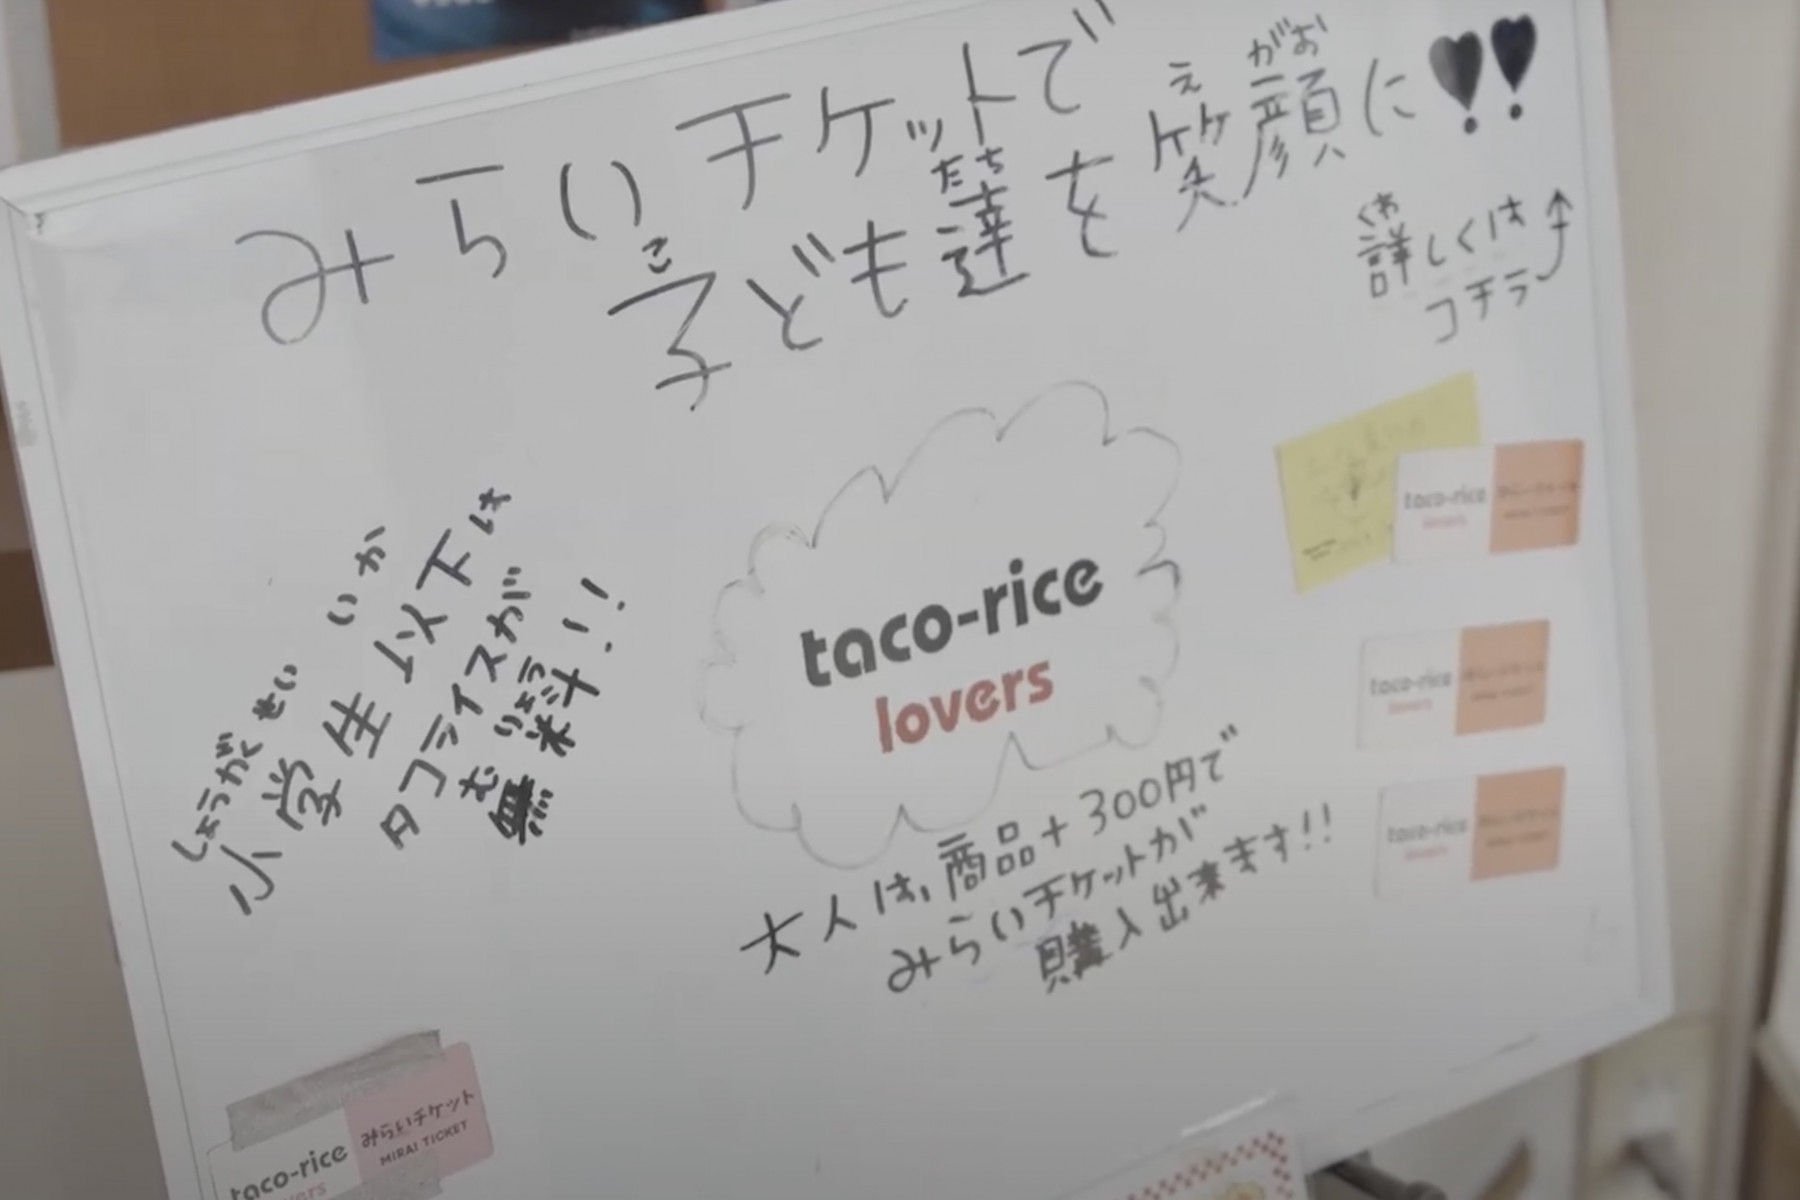 みらいチケットで
子ども達を笑顔に!!
こ
たち
え
がお
くわ
詳しくは
コチラ
しょうがくせい いか
小学生以下は
タコライスが
むりょう
無料!!
taco-rice
lovers
大人は、商品+300円で
みらいチケットが
購入出来ます!!
taco-rice
lovers
taco-rice
lovers
taco-rice
lovers
taco-rice
lovers
みらいチケット
MIRAI TICKET